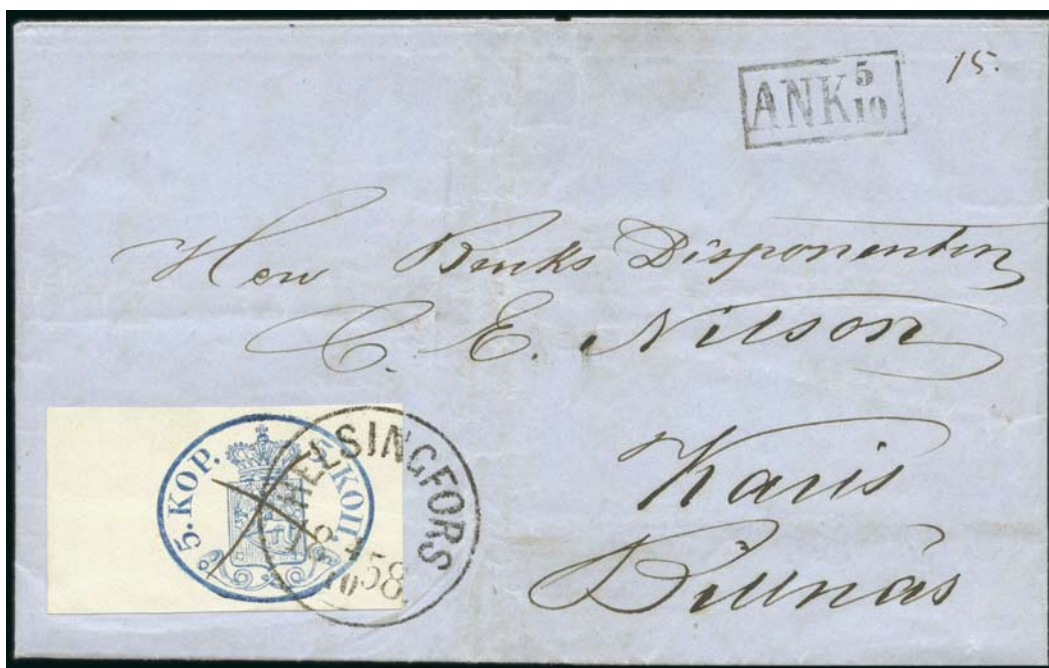 ANK 5/10
15.
Herr Bruks Disponenten
C. E. Nilson
Karis
Billnäs
5. KOP. 5. КОП.
HELSINGFORS
10 58.